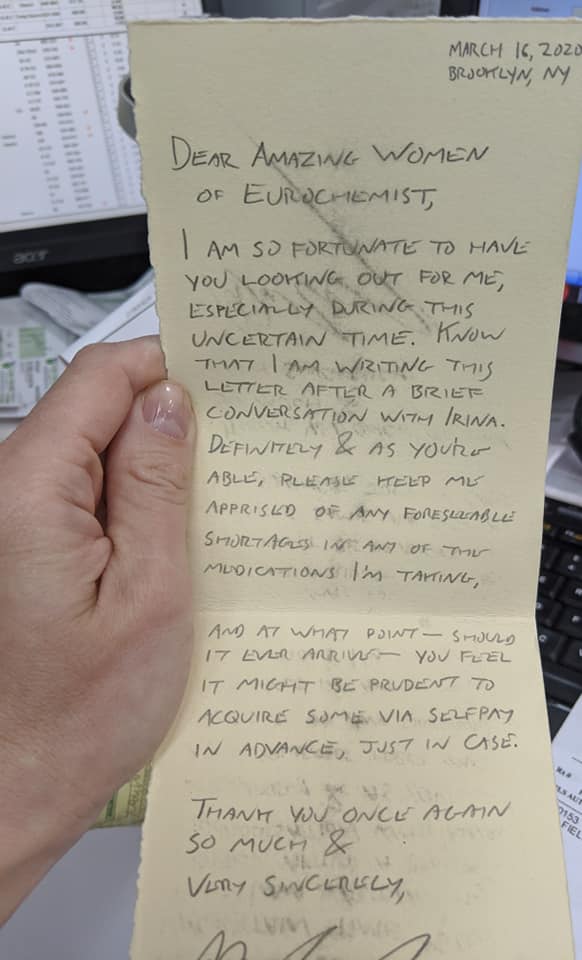 MARCH 16, 2020
BROOKLYN, NY
DEAR AMAZING WOMEN
OF EUROCHEMIST,
I AM SO FORTUNATE TO HAVE
YOU LOOKING OUT FOR ME,
ESPECIALLY DURING THIS
UNCERTAIN TIME. KNOW
THAT I AM WRITING THIS
LETTER AFTER A BRIEF
CONVERSATION WITH IRINA.
DEFINITELY & AS YOU'RE
ABLE, PLEASE KEEP ME
APPRISED OF ANY FORESEEABLE
SHORTAGES IN ANY OF THE
MEDICATIONS I'M TAKING,
AND AT WHAT POINT — SHOULD
IT EVER ARRIVE — YOU FEEL
IT MIGHT BE PRUDENT TO
ACQUIRE SOME VIA SELFPAY
IN ADVANCE, JUST IN CASE.
THANK YOU ONCE AGAIN
SO MUCH &
VERY SINCERELY,
acer